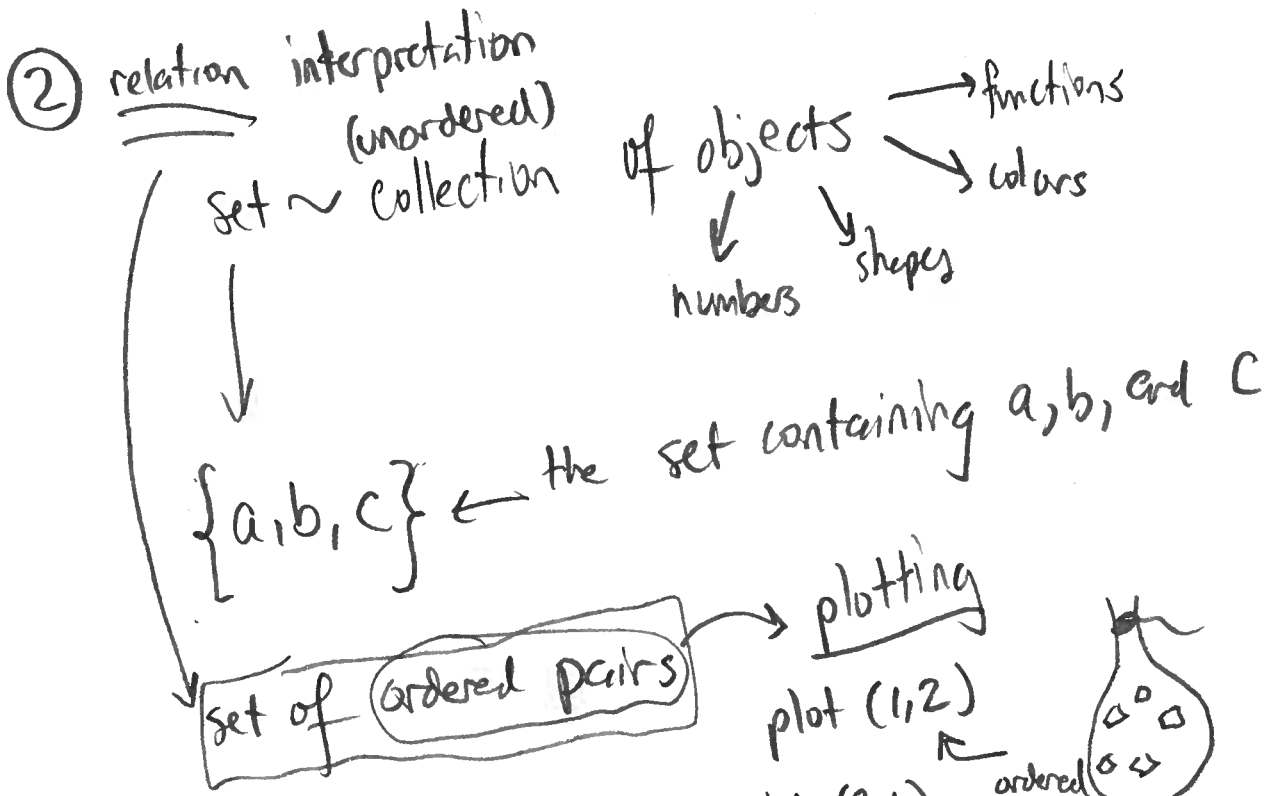 ② relation interpretation
(unordered)
set ~ collection of objects → functions
colors
numbers
shapes
{a, b, c} ← the set containing a, b, and c
set of ordered pairs
plotting
plot (1,2)
ordered